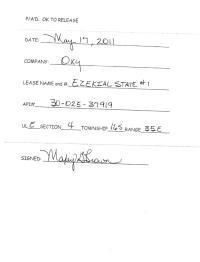 P/A'D. OK TO RELEASE
DATE: May 17, 2011
COMPANY: Oxy
LEASE NAME and #: EZEKIAL STATE #1
API#: 30-025-37919
UL E SECTION 4 TOWNSHIP 16S RANGE 35E
SIGNED: Brown